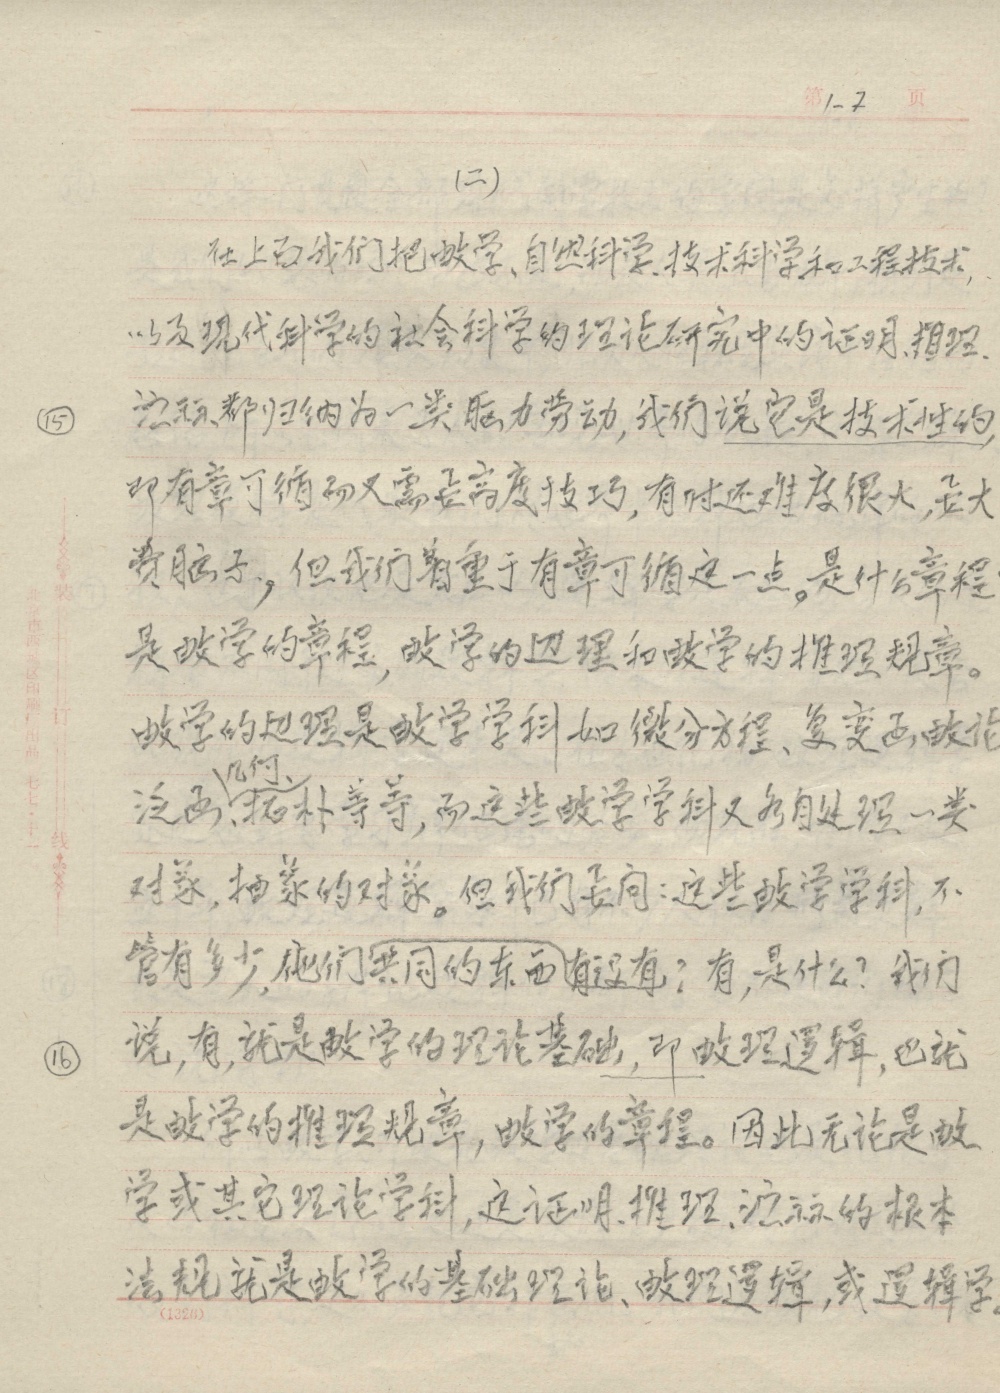 第1-7页
(二)
在上面我们把数学、自然科学、技术科学和工程技术，
以及现代科学的社会科学的理论研究中的证明、推理、
⑮
演示都归纳为一类脑力劳动，我们说它是技术性的，
即有章可循而又需要高度技巧，有时还难度很大，要大
费脑子，但我们着重于有章可循这一点。是什么章程？
是数学的章程，数学的处理和数学的推理规章。
数学的处理是数学学科如微分方程、复变函数论
泛函、几何、拓朴等等，而这些数学学科又各自处理一类
对象，抽象的对象。但我们要问：这些数学学科，不
管有多少，他们共同的东西有没有？有，是什么？我们
⑯
说，有，就是数学的理论基础，即数理逻辑，也就
是数学的推理规章，数学的章程。因此无论是数
学或其它理论学科，这证明、推理、演示的根本
法规就是数学的基础理论、数理逻辑，或逻辑学。
(1328)
订
线